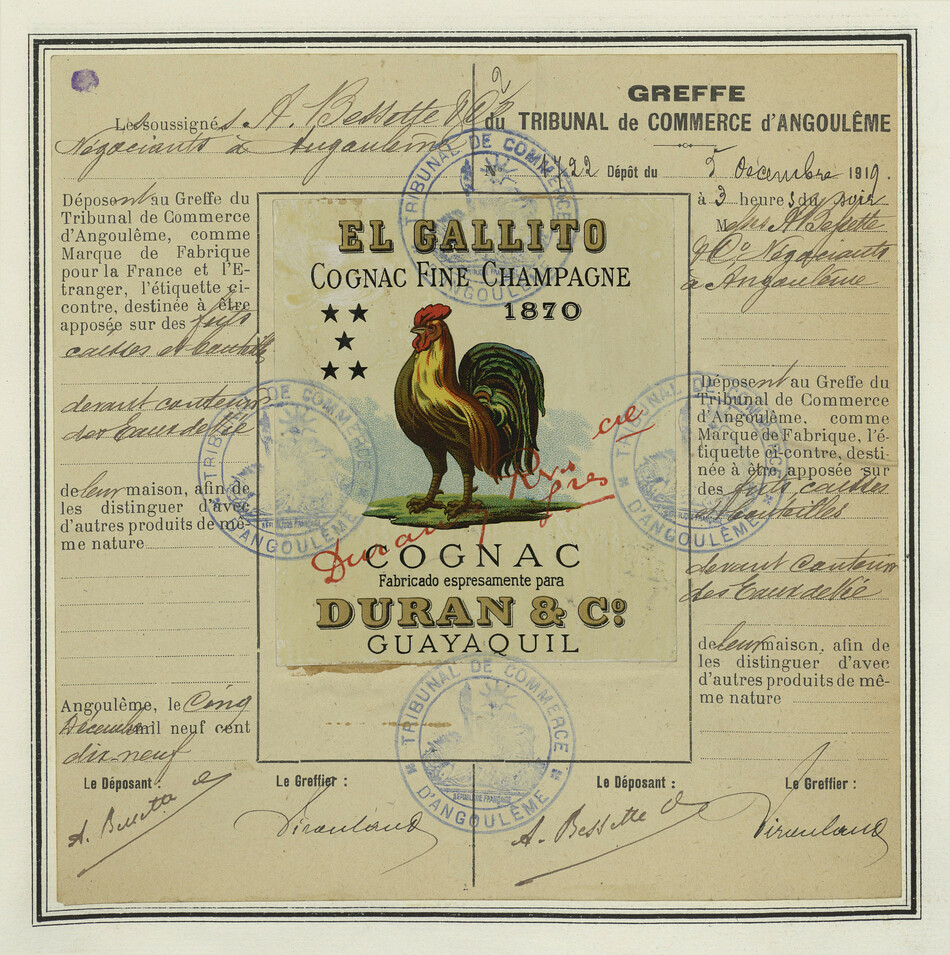 Les soussignés A. Bessette & Co
Négociants à Angoulême
Déposent au Greffe du
Tribunal de Commerce
d'Angoulême, comme
Marque de Fabrique
pour la France et l'E-
tranger, l'étiquette ci-
contre, destinée à être
apposée sur des fûts
caisses et bouteilles
devant contenir
des Eaux de Vie
de leur maison, afin de
les distinguer d'avec
d'autres produits de mê-
me nature
Angoulême, le Cinq
Décembre mil neuf cent
dix-neuf
Le Déposant :
Le Greffier :
A. Bessette
EL GALLITO
COGNAC FINE CHAMPAGNE
1870
COGNAC
Fabricado espresamente para
DURAN & Co.
GUAYAQUIL
Duran
GREFFE
du TRIBUNAL de COMMERCE d'ANGOULÊME
No 22 Dépôt du 5 décembre 1919.
à 3 heures du soir
M A Bessette
& Co Négociants
à Angoulême
Déposent au Greffe du
Tribunal de Commerce
d'Angoulême, comme
Marque de Fabrique, l'é-
tiquette ci-contre, desti-
née à être apposée sur
des fûts caisses
et bouteilles
devant contenir
des Eaux de Vie
de leur maison, afin de
les distinguer d'avec
d'autres produits de mê-
me nature
Le Déposant :
Le Greffier :
A. Bessette
TRIBUNAL DE COMMERCE D'ANGOULÊME
TRIBUNAL DE COMMERCE D'ANGOULÊME
RÉPUBLIQUE FRANÇAISE
TRIBUNAL DE COMMERCE D'ANGOULÊME
TRIBUNAL DE COMMERCE D'ANGOULÊME
RÉPUBLIQUE FRANÇAISE